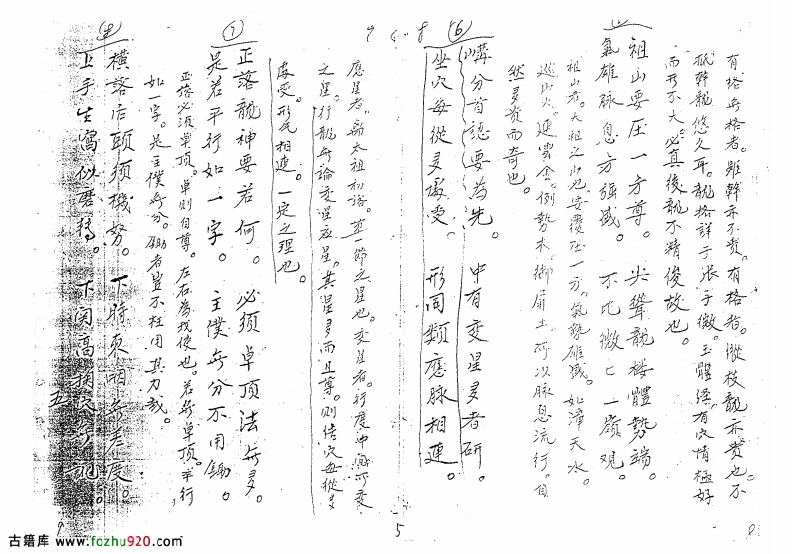 有格無格者。雖幹亦不貴。有格者。縱枝龍亦貴也。不
孤幹龍悠久耳。龍格詳于張子微。玉髓經有穴情極好
而形不大。必真後龍不精俊故也。
祖山要压一方尊。尖聳龍楼體勢端。
氣雄脉息方强盛。不比微微一嶺观。
祖山者。大祖之山也。要覆压一方。氣勢雄盛。如漳天水。
連雲金。倒勢木。御屏土。所以脉息流行。自
然多贵而奇也。
⑥
分首認要為先。中有变星多者研。
坐穴每從多處受。形同類應脉相連。
應星者。太祖初落。第一節之星也。变星者。行度中间所变
之星。行龍無論变星应星。其星多而且尊。则結穴每從多
處受。形氣相連。一定之理也。
⑦
正落龍神要若何。必须卓顶法無多。
若平行如一字。主僕無分不用鋤。
正落必须卓顶。卓则自尊。左右為我使也。若無卓顶。平行
如一字。是主僕無分。鋤者豈不枉用其力哉。
横落后頭须機努。下時束咽無差度。
上手生窩似磨轉。下関高
五
9
5
8
古籍库 www.fozhu920.com